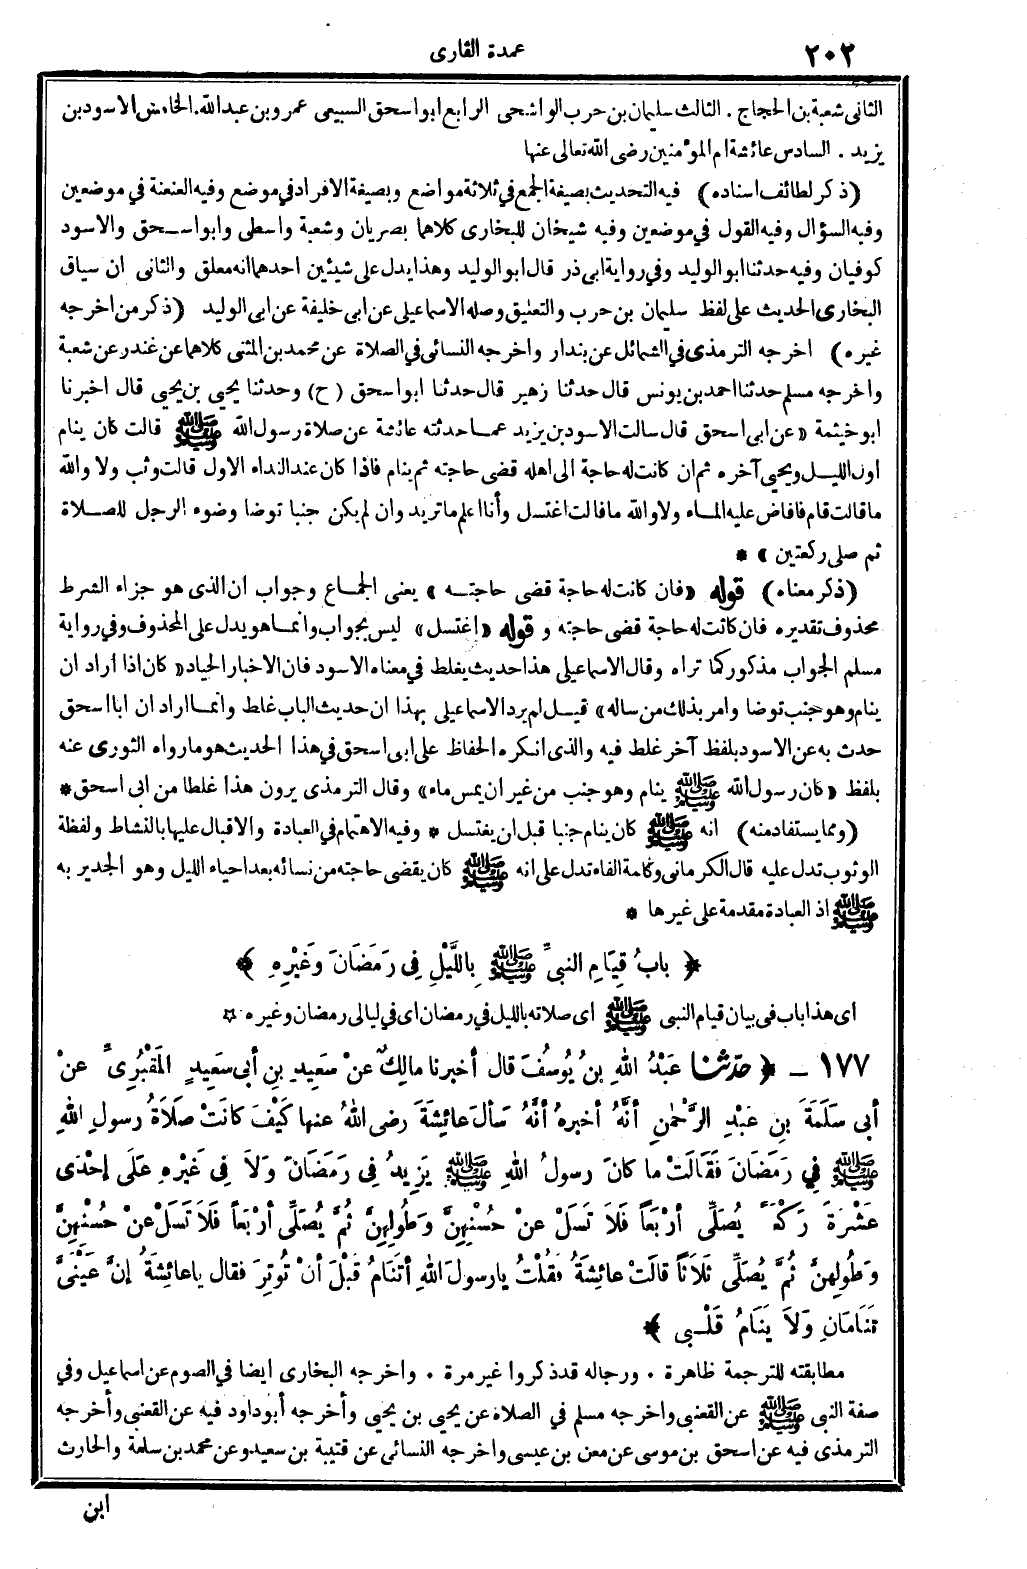 ٢٠٢
عمدة القارى
الثانى شعبة بن الحجاج . الثالث سليمان بن حرب الواشحى الرابع ابو اسحق السبيعى عمرو بن عبد الله . الخامس الاسود بن
يزيد . السادس عائشة ام المؤمنين رضى الله تعالى عنها
(ذكر لطائف اسناده) فيه التحديث بصيغة الجمع في ثلاثة مواضع وبصيغة الافراد في موضع وفيه العنعنة في موضعين
وفيه السؤال وفيه القول في موضعين وفيه شيخان للبخارى كلاهما بصريان وشعبة واسطى وابو اسحق والاسود
كوفيان وفيه حدثنا ابو الوليد وفي رواية ابى ذر قال ابو الوليد وهذا يدل على شيئين احدهما انه معلق والثانى ان سياق
البخارى الحديث على لفظ سليمان بن حرب والتعليق وصله الاسماعيلى عن ابى خليفة عن ابى الوليد (ذكر من اخرجه
غيره) اخرجه الترمذى في الشمائل عن بندار واخرجه النسائى في الصلاة عن محمد بن المثنى كلاهما عن غندر عن شعبة
واخرجه مسلم حدثنا احمد بن يونس قال حدثنا زهير قال حدثنا ابو اسحق (ح) وحدثنا يحيى بن يحيى قال اخبرنا
ابو خيثمة «عن ابى اسحق قال سالت الاسود بن يزيد عما حدثته عائشة عن صلاة رسول الله ﷺ قالت كان ينام
اول الليل ويحيى آخره ثم ان كانت له حاجة الى اهله قضى حاجته ثم ينام فاذا كان عند النداء الاول قالت وثب ولا والله
ما قالت قام فافاض عليه الماء ولا والله ما قالت اغتسل وأنا اعلم ما تريد وان لم يكن جنبا توضا وضوء الرجل للصلاة
ثم صلى ركعتين» *
(ذكر معناه) قوله «فان كانت له حاجة قضى حاجته» يعنى الجماع وجواب ان الذى هو جزاء الشرط
محذوف تقديره فان كانت له حاجة قضى حاجته و قوله «اغتسل» ليس بجواب وانما هو يدل على المحذوف وفي رواية
مسلم الجواب مذكور كما تراه وقال الاسماعيلى هذا حديث يغلط في معناه الاسود فان الاخبار الجياد «كان اذا اراد ان
ينام وهو جنب توضا وامر بذلك من ساله» قيل لم يرد الاسماعيلى بهذا ان حديث الباب غلط وانما اراد ان ابا اسحق
حدث به عن الاسود بلفظ آخر غلط فيه والذى انكره الحفاظ على ابى اسحق في هذا الحديث هو مارواه الثورى عنه
بلفظ «كان رسول الله ﷺ ينام وهو جنب من غير ان يمس ماء» وقال الترمذى يرون هذا غلطا من ابى اسحق *
(ومما يستفاد منه) انه ﷺ كان ينام جنبا قبل ان يغتسل * وفيه الاهتمام في العبادة والاقبال عليها بالنشاط ولفظة
الوثوب تدل عليه قال الكرمانى وكلمة الفاء تدل على انه ﷺ كان يقضى حاجته من نسائه بعد احياء الليل وهو الجدير به
ﷺ اذ العبادة مقدمة على غيرها *
﴿ بابُ قِيَامِ النبىِّ ﷺ بِاللَّيْلِ فِى رَمَضَانَ وَغَيْرِهِ ﴾
اى هذا باب فى بيان قيام النبى ﷺ اى صلاته بالليل في رمضان اى في ليالى رمضان وغيره *
١٧٧ ــ ﴿ حدّثنا عَبْدُ اللهِ بنُ يُوسُفَ قال أخبرنا مالكٌ عنْ سَعِيدِ بنِ أبى سَعِيدٍ المَقْبُرِىِّ عنْ
أبى سَلَمَةَ بنِ عَبْدِ الرَّحْمٰنِ أنَّهُ أخبرهُ أنَّهُ سَألَ عائِشَةَ رضى اللهُ عنها كَيْفَ كانَتْ صَلَاةُ رسولِ اللهِ
ﷺ فِي رَمَضَانَ فَقَالَتْ ما كانَ رسولُ اللهِ ﷺ يَزِيدُ فِى رَمَضَانَ وَلاَ فِى غَيْرِهِ عَلَى إحْدَى
عَشْرَةَ رَكْعَةً يُصَلِّى أرْبَعاً فَلاَ تَسَلْ عنْ حُسْنِهِنَّ وَطُولِهِنَّ ثُمَّ يُصَلِّى أرْبَعاً فَلاَ تَسَلْ عنْ حُسْنِهِنَّ
وَطُولِهِنَّ ثُمَّ يُصَلِّى ثَلَاثاً قالَتْ عائِشَةُ فَقُلْتُ يا رسولَ اللهِ أتَنَامُ قَبْلَ أنْ تُوتِرَ فقال يا عائِشَةُ إنَّ عَيْنَىَّ
تَنَامَانِ وَلاَ يَنَامُ قَلْبِى ﴾
مطابقته للترجمة ظاهرة . ورجاله قد ذكروا غير مرة . واخرجه البخارى ايضا في الصوم عن اسماعيل وفي
صفة النبى ﷺ عن القعنبى واخرجه مسلم في الصلاة عن يحيى بن يحيى وأخرجه أبو داود فيه عن القعنبى وأخرجه
الترمذى فيه عن اسحق بن موسى عن معن بن عيسى واخرجه النسائى عن قتيبة بن سعيد وعن محمد بن سلمة والحارث
ابن